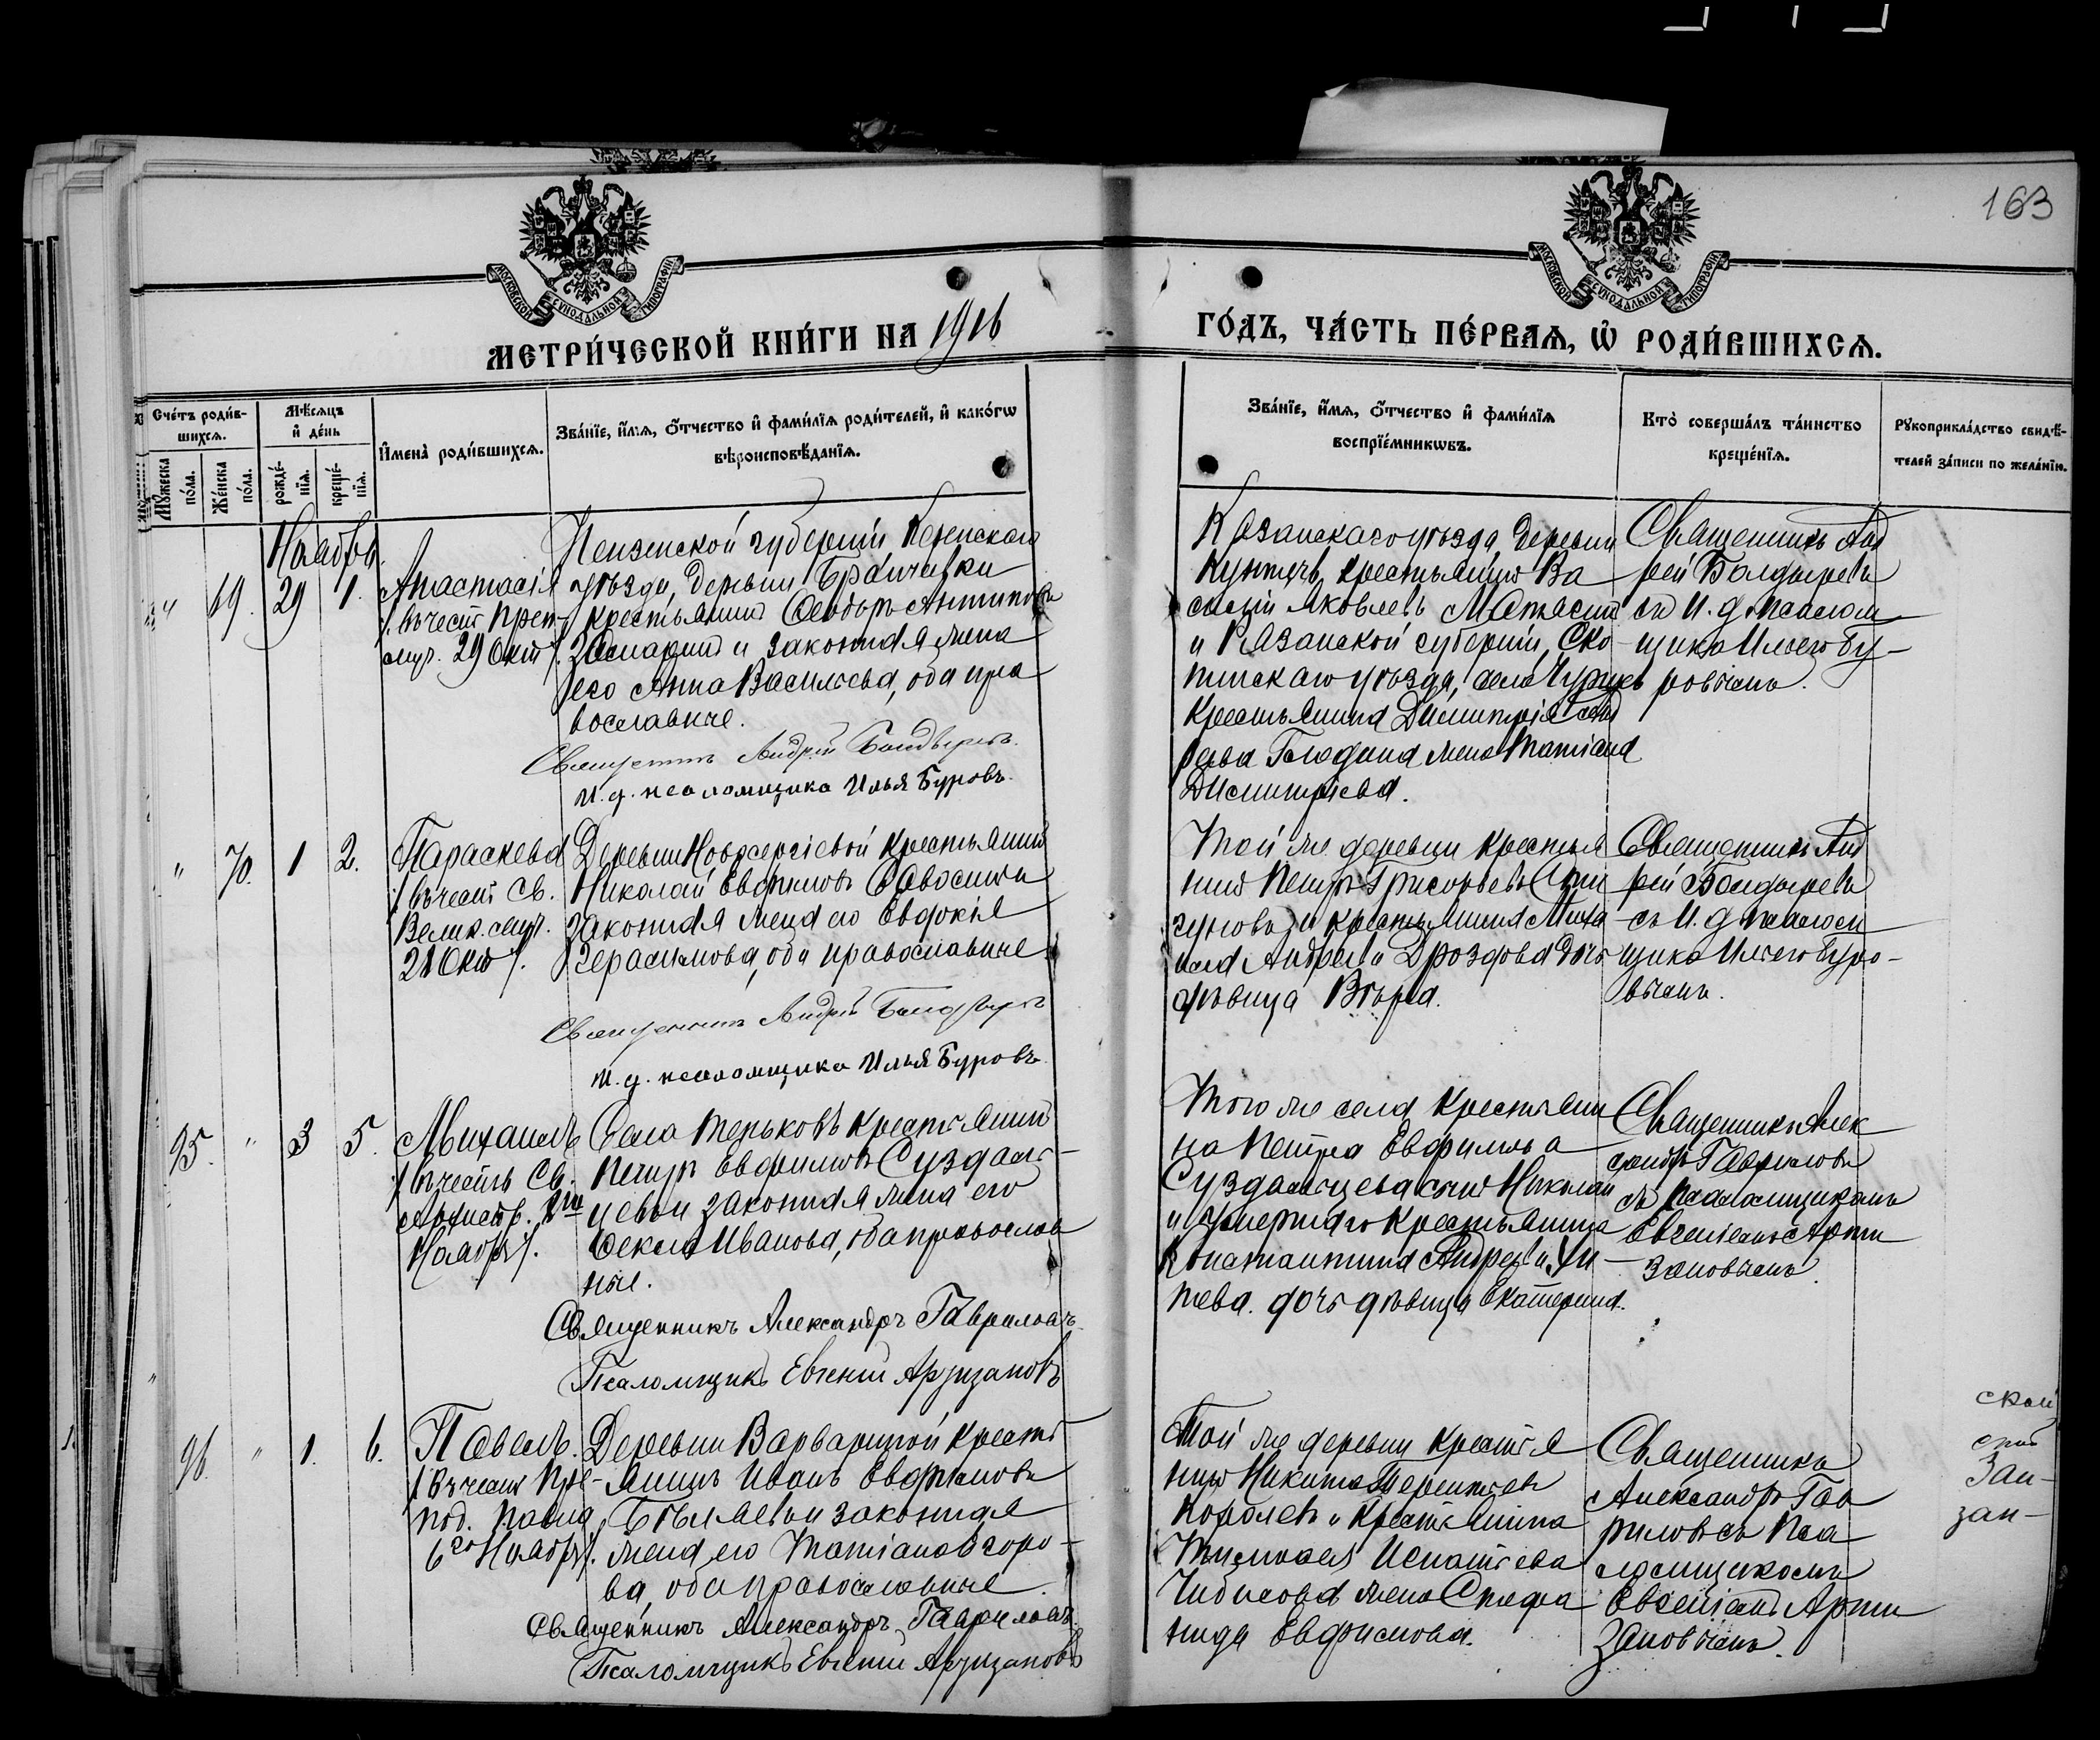 163
МОСКОВСКОЙ СѴНОДАЛЬНОЙ ТИПОГРАФІИ
МОСКОВСКОЙ СѴНОДАЛЬНОЙ ТИПОГРАФІИ
МЕТРИ́ЧЕСКОЙ КНИ́ГИ НА 1916
ГО́ДЪ, ЧА́СТЬ ПЕ́РВАѦ, Ѡ҆ РОДИ́ВШИХСѦ.
Сче́тъ роди́в-
шихсѧ.
Мꙋ́жеска по́ла.
Же́нска по́ла.
Мѣ́сѧцъ
и҆ де́нь
рожде́-
нїѧ.
креще́-
нїѧ.
И҆мена̀ роди́вшихсѧ.
Зва́нїе, и҆́мѧ, ѻ҆́тчество и҆ фами́лїѧ роди́телей, и҆ како́гѡ
вѣроисповѣ́данїѧ.
Зва́нїе, и҆́мѧ, ѻ҆́тчество и҆ фами́лїѧ
воспрїе́мникѡвъ.
Кто̀ соверша́лъ та́инство
креще́нїѧ.
Рꙋкоприкла́дство свидѣ́-
телей за́писи по жела́нїю.
Ноябрь
69. 29 1.
Анастасія
/въ честь преп.
муч. 29 Окт/.
Пензенской губерніи, Керенскаго
уѣзда, деревни
крестьянинъ Ѳеодоръ Антиповъ
и законная жена
его Анна Васильева, оба пра
вославные.
Священникъ Андрей Болдыревъ.
И. д. псаломщика Илья Буровъ.
Казанскаго уѣзда, деревни
крестьянинъ Ва
силій Яковлевъ
и Рязанской губерніи, Ско-
пинскаго уѣзда, села
крестьянина Димитрія
жена Татіана
Димитріева.
Священникъ Анд
рей Болдыревъ
съ И. д. псалом
щика Ильею Бу-
ровымъ.
" 70. 1 2.
Параскева
/въ честь Св.
Велик. муч.
28 Окт/.
Деревни Новосергіевой крестьянинъ
Николай Евфимовъ и
законная жена его Евдокія
Герасимова, оба православные.
Священникъ Андрей Болдыревъ
И. д. псаломщика Илья Буровъ
Той же деревни крестья
нинъ Петръ Григорьевъ
и крестьянина
Андреева Дроздова дочь
дѣвица Вѣра.
Священникъ Анд
рей Болдыревъ
съ И. д. псалом
щика Ильею Буро-
вымъ.
95. " 3 5.
Михаилъ
/въ честь Св.
Архистр. 8го
Ноября/.
Села Терьковъ крестьянинъ
Петръ Евфимовъ Суздаль-
цевъ и законная жена его
Ѳекла Иванова, оба православ
ные.
Священникъ Александръ Гавриловъ
Псаломщикъ Евгеній Арзизановъ
Того же села крестьяни
на Петра Евфимова
Суздальцева сынъ Николай
и умершаго крестьянина
Константина Андреева
дочь дѣвица Екатерина.
Священникъ Алек
сандръ Гавриловъ
съ псаломщикомъ
Евгеніемъ
зановымъ.
96. " 1. 6.
Павелъ.
/въ честь Пре-
под. Павла
6го Ноября/.
Деревни Варвариной кресть
янинъ Иванъ Евфимовъ
Бѣляевъ и законная
жена его Татіана
ва, оба православные.
Священникъ Александръ Гавриловъ.
Псаломщикъ Евгеній Арзизановъ
Той же деревни крестья
нинъ Никита Терентьевъ
Королевъ и крестьянина
Тимоѳея Игнатьева
Чибисова жена Стефа
нида Евфимова.
Священникъ
Александръ Гав
риловъ съ пса
ломщикомъ
Евгеніемъ
зановымъ.
ской
зан-